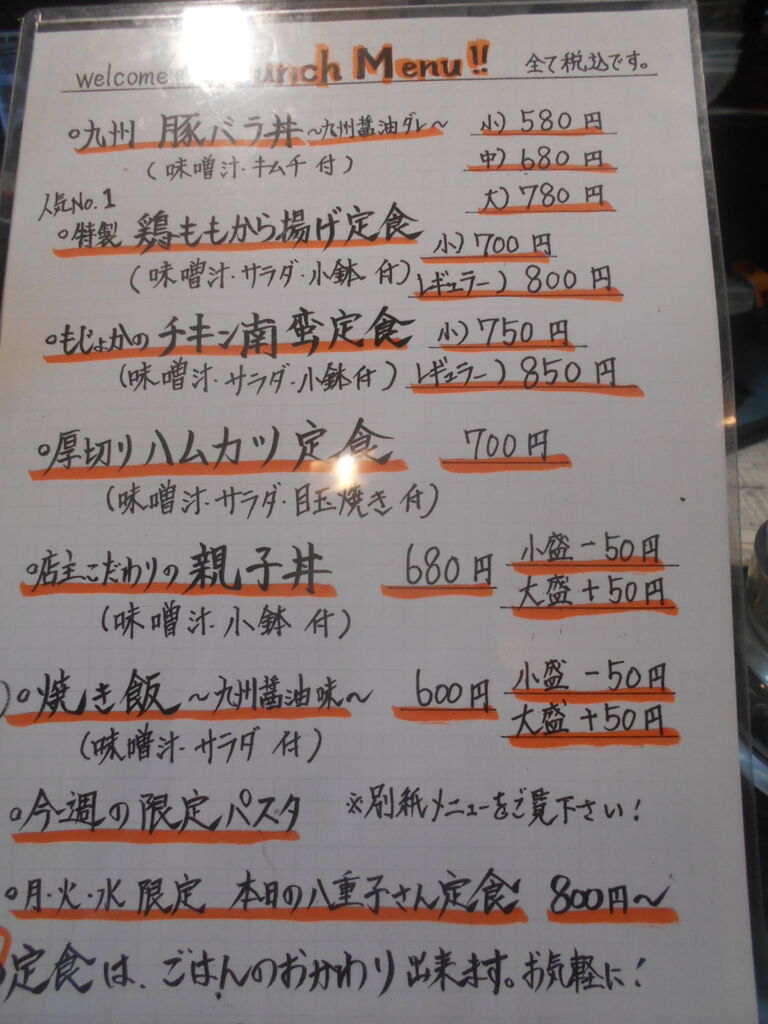 welcome Lunch Menu!! 全て税込です。
○九州 豚バラ丼 〜九州醤油ダレ〜 小)580円
(味噌汁・キムチ付) 中)680円
大)780円
人気No.1
○特製 鶏ももから揚げ定食 小)700円
(味噌汁・サラダ・小鉢付) レギュラー)800円
○もじょかのチキン南蛮定食 小)750円
(味噌汁・サラダ・小鉢付) レギュラー)850円
○厚切りハムカツ定食 700円
(味噌汁・サラダ・目玉焼き付)
○店主こだわりの親子丼 680円 小盛-50円
大盛+50円
(味噌汁・小鉢付)
○焼き飯〜九州醤油味〜 600円 小盛-50円
大盛+50円
(味噌汁・サラダ付)
○今週の限定パスタ ※別紙メニューをご覧下さい!
○月・火・水限定 本日の八重子さん定食 800円〜
定食は、ごはんのおかわり出来ます。お気軽に!